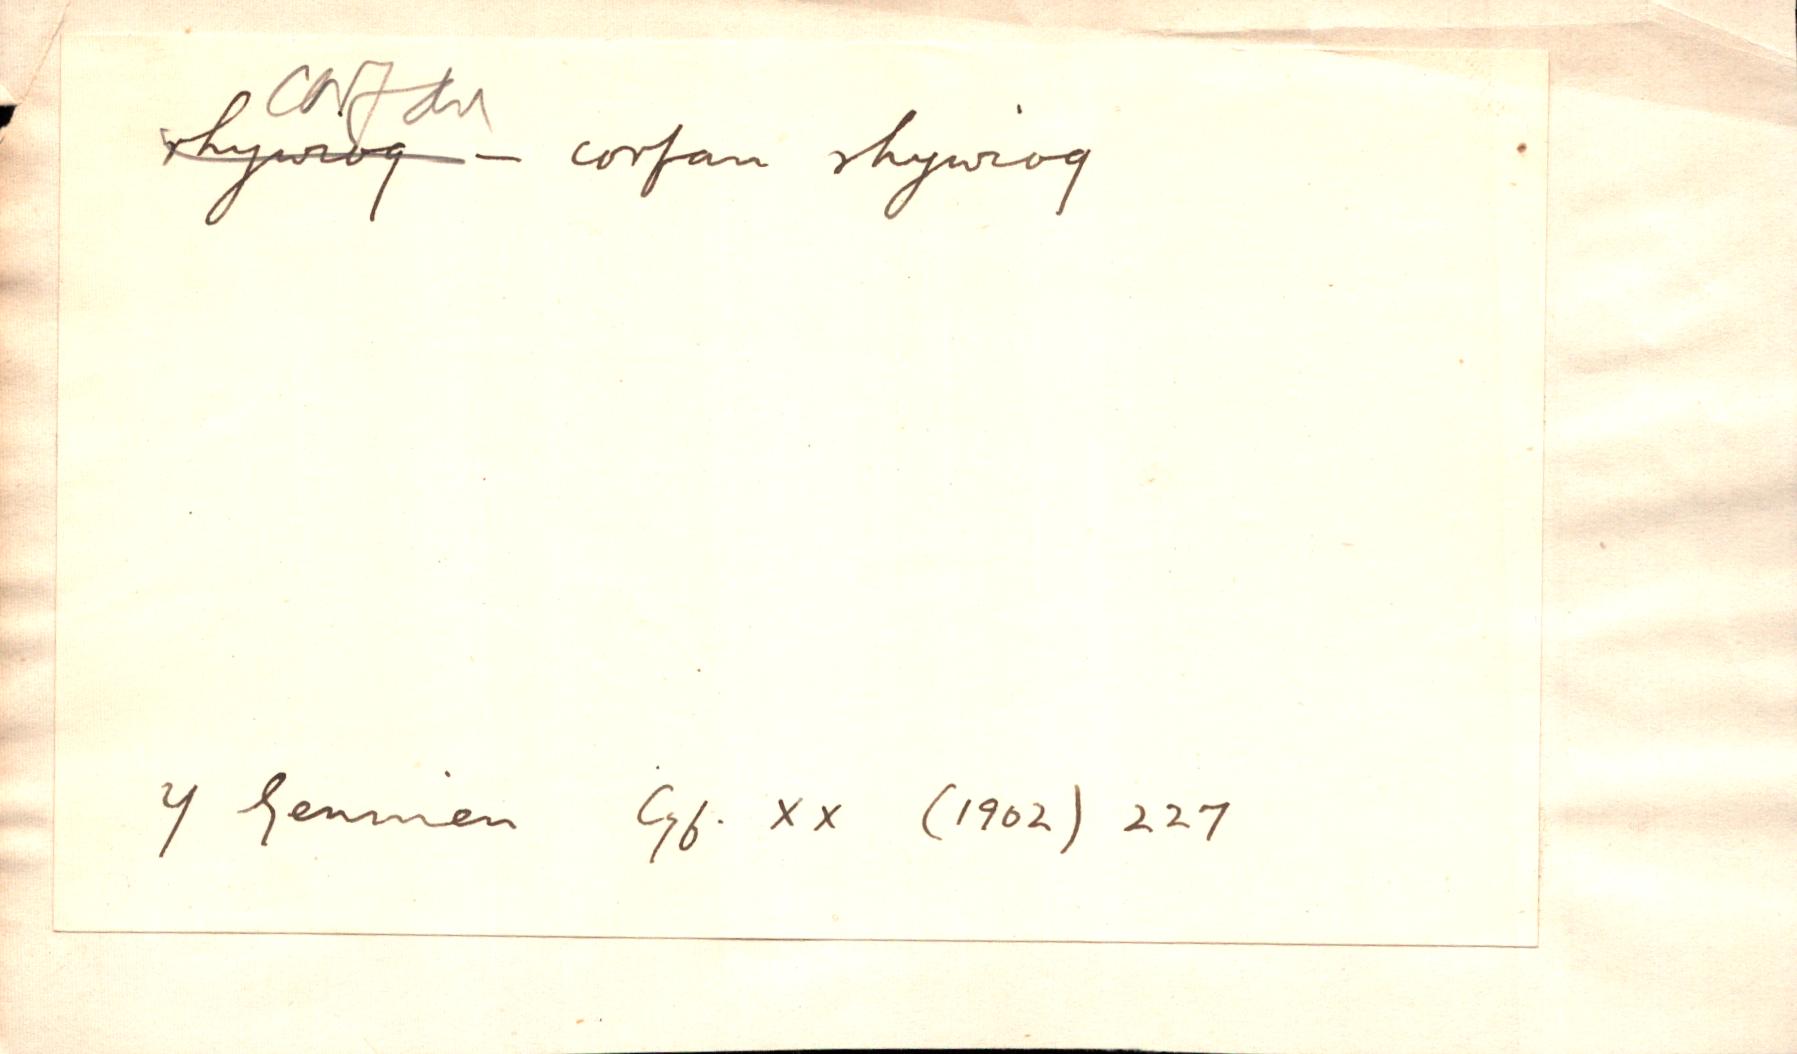 corfan
rhywiog — corfan rhywiog
Y Geninen Cyf. XX (1902) 227